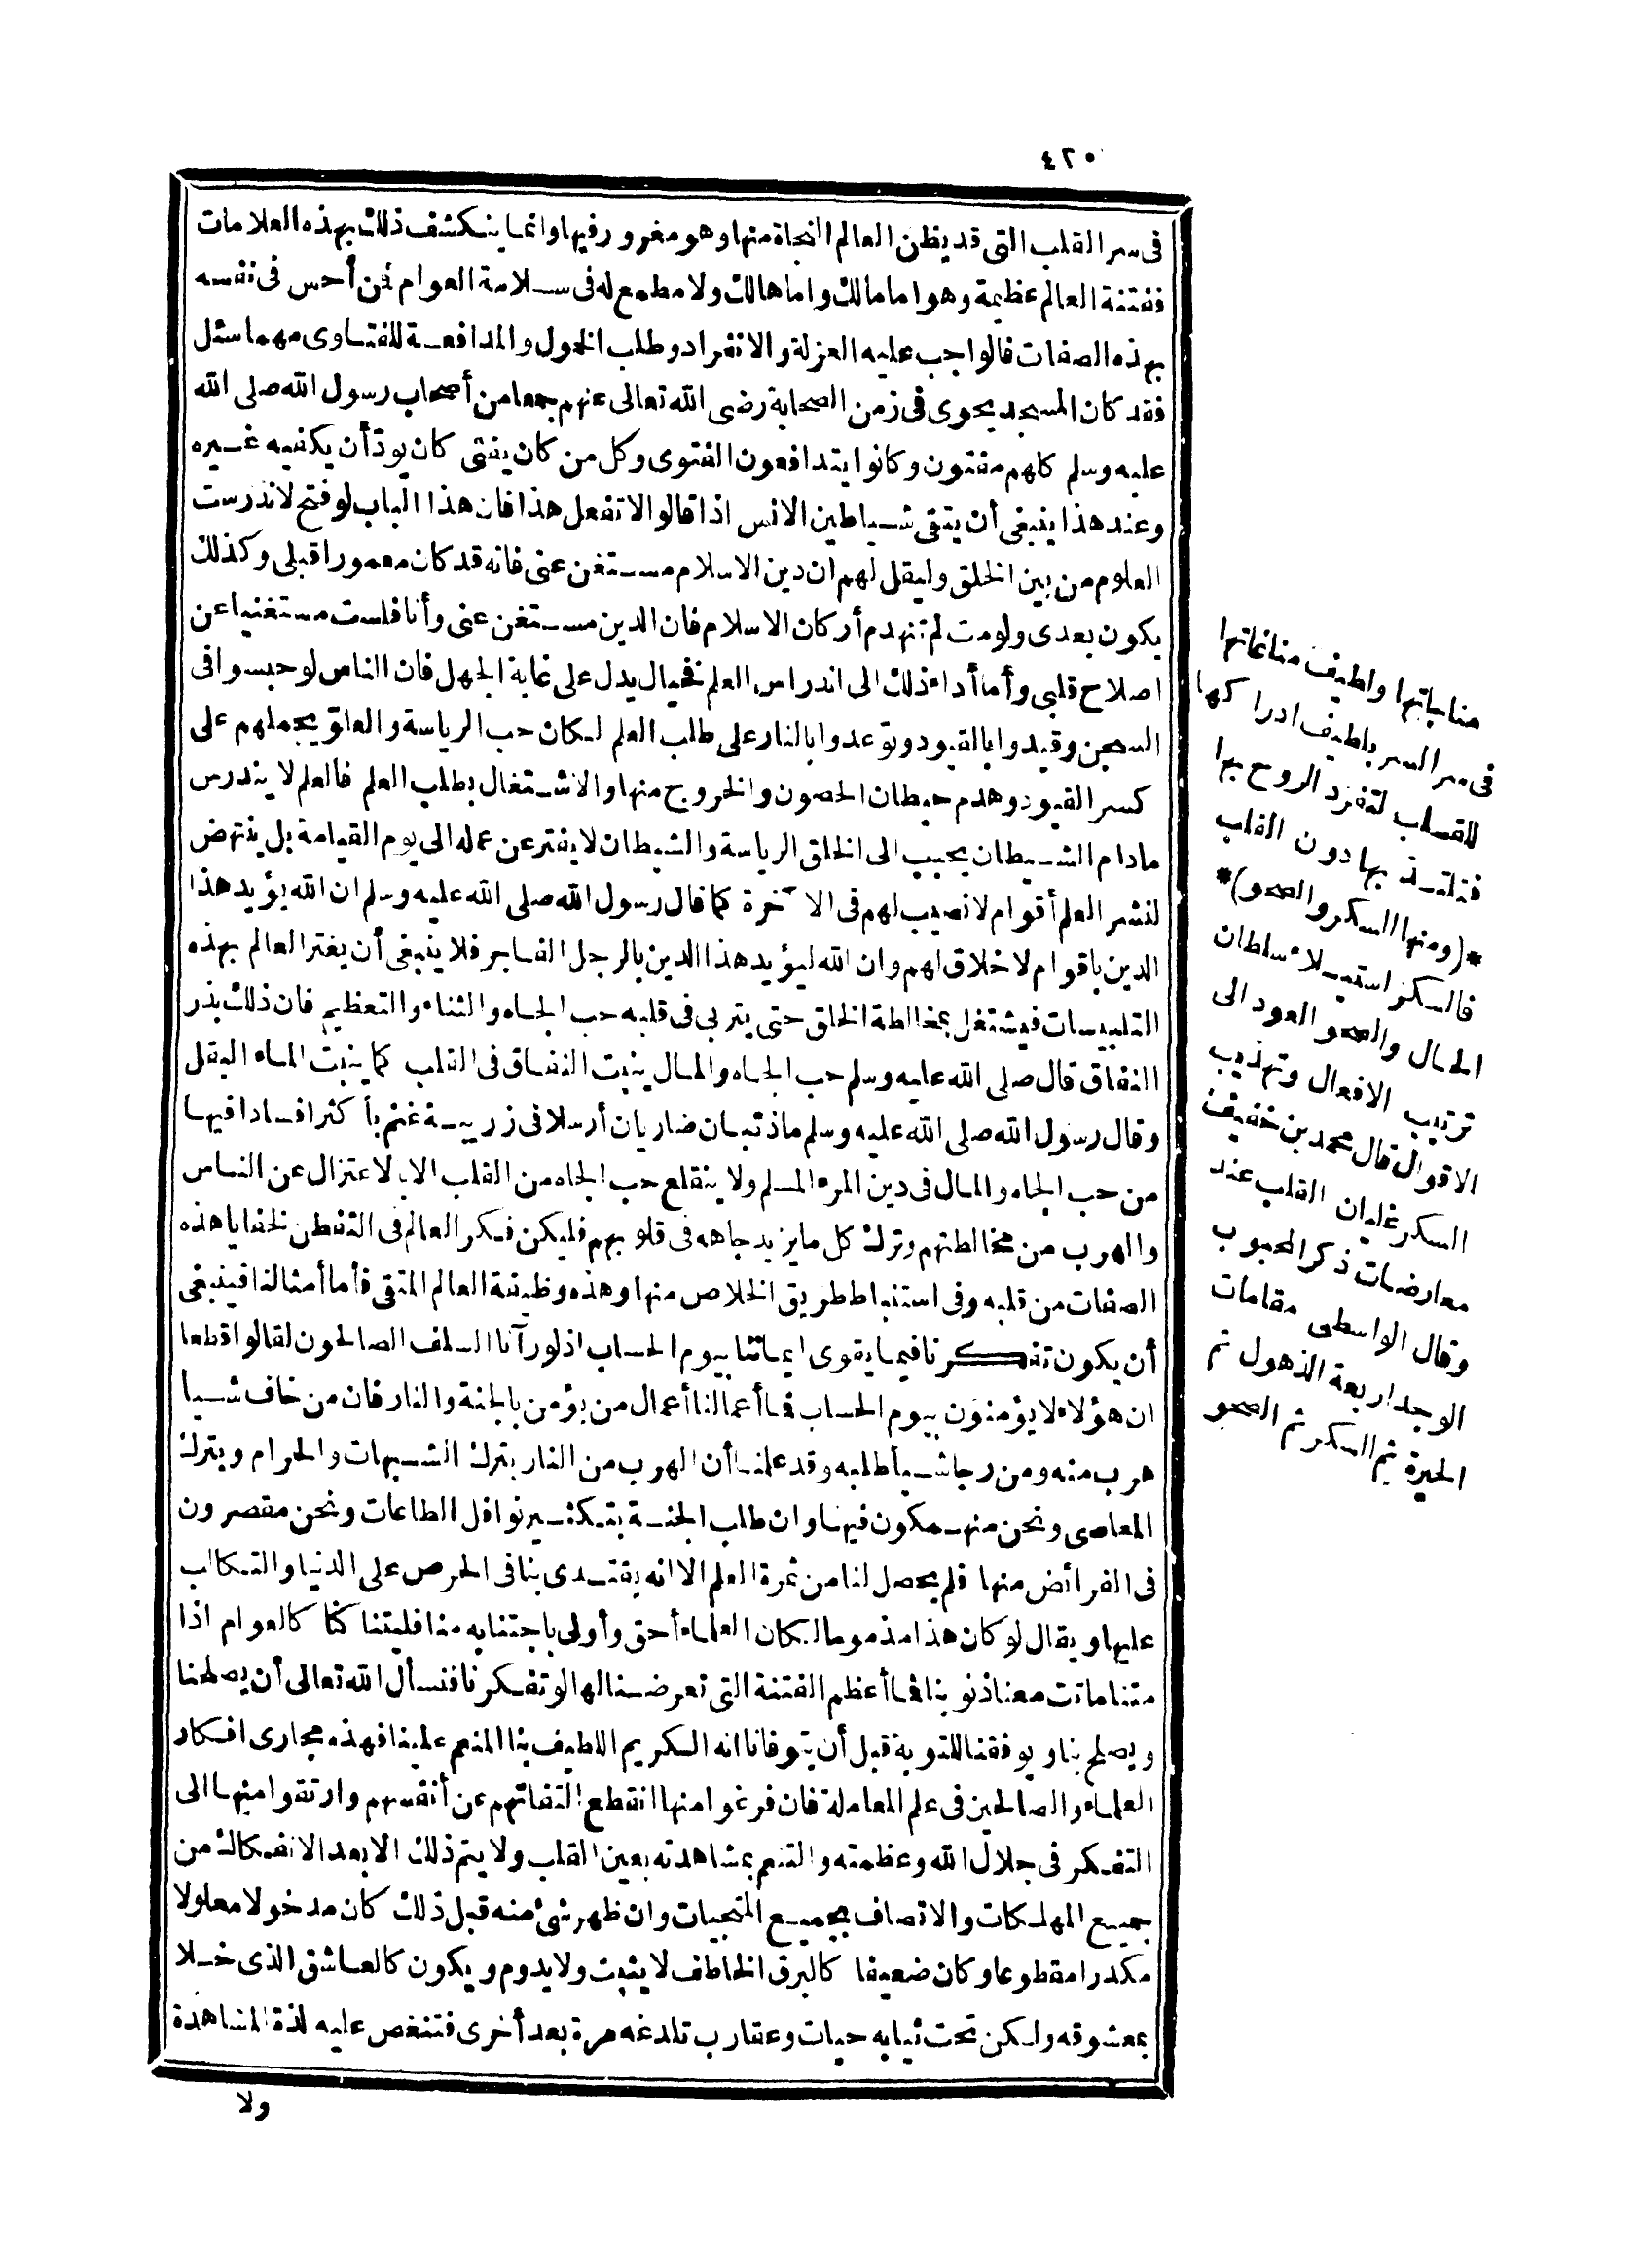 ٤٢٠
فى سر القلب التى قد يظن العالم النجاة منها وهو مغرور فيها وانما ينكشف ذلك بهذه العلامات
ففتنة العالم عظيمة وهو اما مالك واما هالك ولا مطمع له فى سلامة العوام فمن أحس فى نفسه
بهذه الصفات فالواجب عليه العزلة والانفراد وطلب الخمول والمدافعة للفتاوى مهما سئل
فقد كان المسجد يحوى فى زمن الصحابة رضى الله تعالى عنهم جمعا من أصحاب رسول الله صلى الله
عليه وسلم كلهم مفتون وكانوا يتدافعون الفتوى وكل من كان يفتى كان يودّ أن يكفيه غيره
وعند هذا ينبغى أن يتقى شياطين الانس اذا قالوا لا تفعل هذا فان هذا الباب لو فتح لاندرست
العلوم من بين الخلق وليقل لهم ان دين الاسلام مستغن عنى فانه قد كان معمورا قبلى وكذلك
يكون بعدى ولو مت لم تنهدم أركان الاسلام فان الدين مستغن عنى وأنا فلست مستغنيا عن
اصلاح قلبى وأما أداء ذلك الى اندراس العلم فخيال يدل على غاية الجهل فان الناس لو حبسوا فى
السجن وقيدوا بالقيود وتوعدوا بالنار على طلب العلم لكان حب الرياسة والعلوّ يحملهم على
كسر القيود وهدم حيطان الحصون والخروج منها والاشتغال بطلب العلم فالعلم لا يندرس
مادام الشيطان يحبب الى الخلق الرياسة والشيطان لا يفتر عن عمله الى يوم القيامة بل ينتهض
لنشر العلم أقوام لا نصيب لهم فى الآخرة كما قال رسول الله صلى الله عليه وسلم ان الله يؤيد هذا
الدين باقوام لا خلاق لهم وان الله ليؤيد هذا الدين بالرجل الفاجر فلا ينبغى أن يغتر العالم بهذه
التلبيسات فيشتغل بمخالطة الخلق حتى يتربى فى قلبه حب الجاه والثناء والتعظيم فان ذلك بذر
النفاق قال صلى الله عليه وسلم حب الجاه والمال ينبت النفاق فى القلب كما ينبت الماء البقل
وقال رسول الله صلى الله عليه وسلم ما ذئبان ضاريان أرسلا فى زريبة غنم بأكثر افسادا فيها
من حب الجاه والمال فى دين المرء المسلم ولا ينقلع حب الجاه من القلب الا بالاعتزال عن الناس
والهرب من مخالطتهم وترك كل ما يزيد جاهه فى قلوبهم فليكن فكر العالم فى التفطن لخفايا هذه
الصفات من قلبه وفى استنباط طريق الخلاص منها وهذه وظيفة العالم المتقى فأما أمثالنا فينبغى
أن يكون تفكرنا فيما يقوى ايماننا بيوم الحساب اذ لو رآنا السلف الصالحون لقالوا قطعا
ان هؤلاء لا يؤمنون بيوم الحساب فما أعمالنا أعمال من يؤمن بالجنة والنار فان من خاف شيأ
هرب منه ومن رجا شيأ طلبه وقد علمنا أن الهرب من النار بترك الشبهات والحرام وبترك
المعاصى ونحن منهمكون فيها وان طلب الجنة بتكثير نوافل الطاعات ونحن مقصرون
فى الفرائض منها فلم يحصل لنا من ثمرة العلم الا انه يقتدى بنا فى الحرص على الدنيا والتكالب
عليها ويقال لو كان هذا مذموما لكان العلماء أحق وأولى باجتنابه منا فليتنا كنا كالعوام اذا
متنا ماتت معنا ذنوبنا فما أعظم الفتنة التى تعرضنا لها لو تفكرنا فنسأل الله تعالى أن يصلحنا
ويصلح بنا ويوفقنا للتوبة قبل أن يتوفانا انه الكريم اللطيف بنا المنعم علينا فهذه مجارى افكار
العلماء والصالحين فى علم المعاملة فان فرغوا منها انقطع التفاتهم عن أنفسهم وارتقوا منها الى
التفكر فى جلال الله وعظمته والتنعم بمشاهدته بعين القلب ولا يتم ذلك الا بعد الانفكاك من
جميع المهلكات والاتصاف بجميع المنجيات وان ظهر شئ منه قبل ذلك كان مدخولا معلولا
مكدرا مقطوعا وكان ضعيفا كالبرق الخاطف لا يثبت ولا يدوم ويكون كالعاشق الذى خلا
بمعشوقه ولكن تحت ثيابه حيات وعقارب تلدغه مرة بعد أخرى فتنغص عليه لذة المشاهدة
ولا
مناجاتها ولطيف مناغاتها
فى سر السر بلطيف ادراكها
للقلب لتفرد الروح بها
فتلتذ بها دون القلب
*(ومنها السكر والصحو)*
فالسكر استيلاء سلطان
الحال والصحو العود الى
ترتيب الافعال وتهذيب
الاقوال قال محمد بن خفيف
السكر غليان القلب عند
معارضات ذكر المحبوب
وقال الواسطى مقامات
الوجد اربعة الذهول ثم
الحيرة ثم السكر ثم الصحو